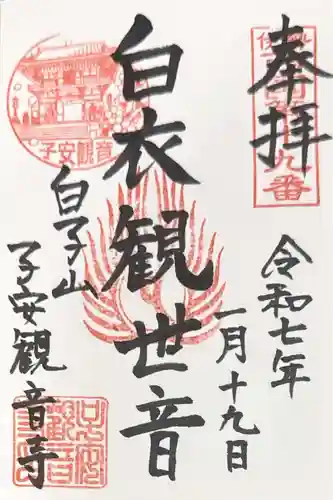 奉拝
令和七年
一月十九日
白衣観世音
子安観音
白子山
子安観音寺